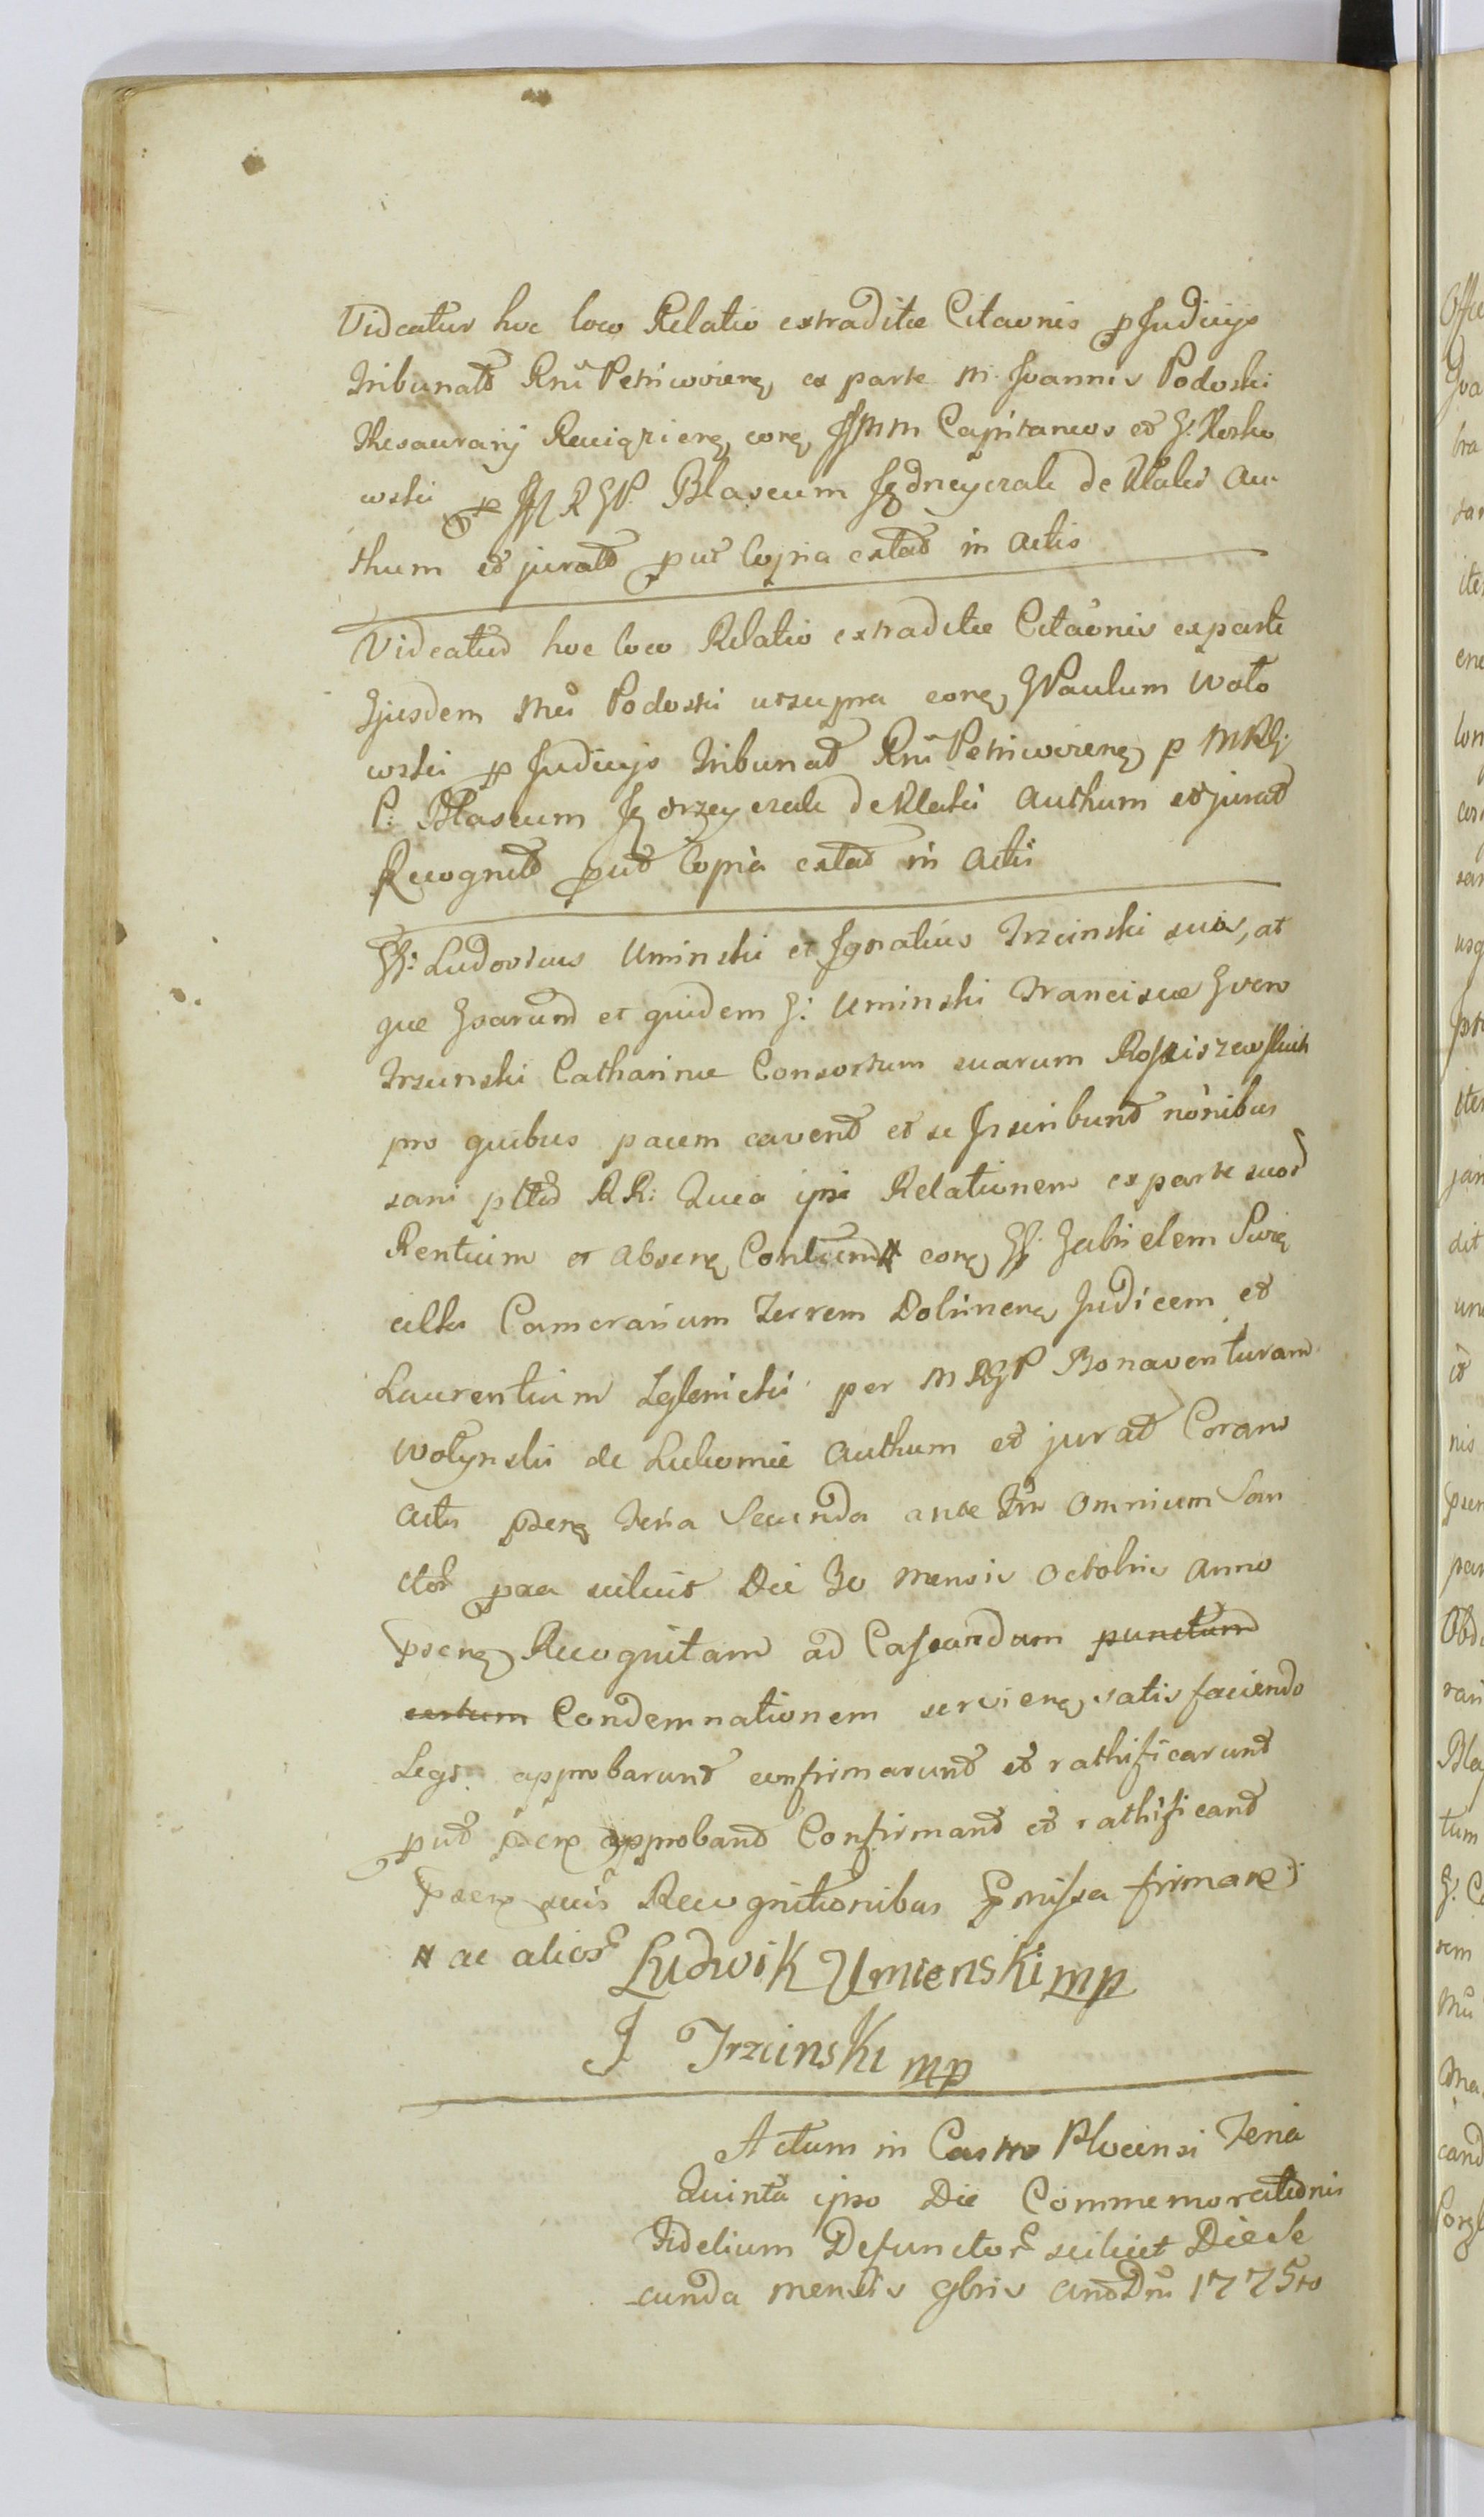 Videatur hoc loco Relatio extraditæ Citaonis p Judicijs
Tribunalð Rnĩ Petricovieng ex parte M. Joannis Podoski
Thesaurarij Rawieng cong JJMM Capitaneos eð G. Rosko
wski p Blaseum Jędrzeyczak de Klaki Au
thum eð juratð put Copia extað in Actis
Videatuð hoc loco Relatio extraditæ Citaonis exparte
Ejusdem Mci Podoski utsupra cong GPaulum Woło
wski p Judicijs Tribunað Rnĩ Petricovieng p MRG
P. Blaseum Jędrzeyczak de Klaki Authum eð jurað
Recognitð puð Copia extað in Actis
GG: Ludovicus Uminski et Ignatius Trzcinski suis, at
que Gsarumð et quidem G: Uminski Franciscæ G vero
Trzcinski Catharinæ Consortum suarum Rościszewskich
pro quibus pacem cavenð eð se Inscribunð nonibus
sani plteð RR: Quia ipsi Relationem ex parte suoꝝ
Rentium et Abseng Contum # cong GG: Gabrielem Swię
cki Camerarium Terrem Dobrineng Judicem eð
Laurentium per MRGP Bonaventuram
Wołynski de Authum eð jurað Coram
Actis pseng Feria Secunda ante Ftũ Omnium San
ctoꝝ pxa scilicet Die 30 Mensis Octobris Anno
pseng Recognitam ad Cassandam punctum
certum Condemnationem servieng satisfaciendo
Legi approbarunð confirmarunð eð rathificarunð
puð pseng approbanð Confirmanð eð rathificanð
pseng suis Recognitionibus pmissa firmare:
# ac alioꝝ Ludwik Umienski mp
I Trzcinski mp
Actum in Castro Plocensi Feria
Quinta ipso Die Commemorationis
Fidelium Defunctoꝝ scilicet Die Se
cunda Mensis 9bris Anð Dnĩ 1775to